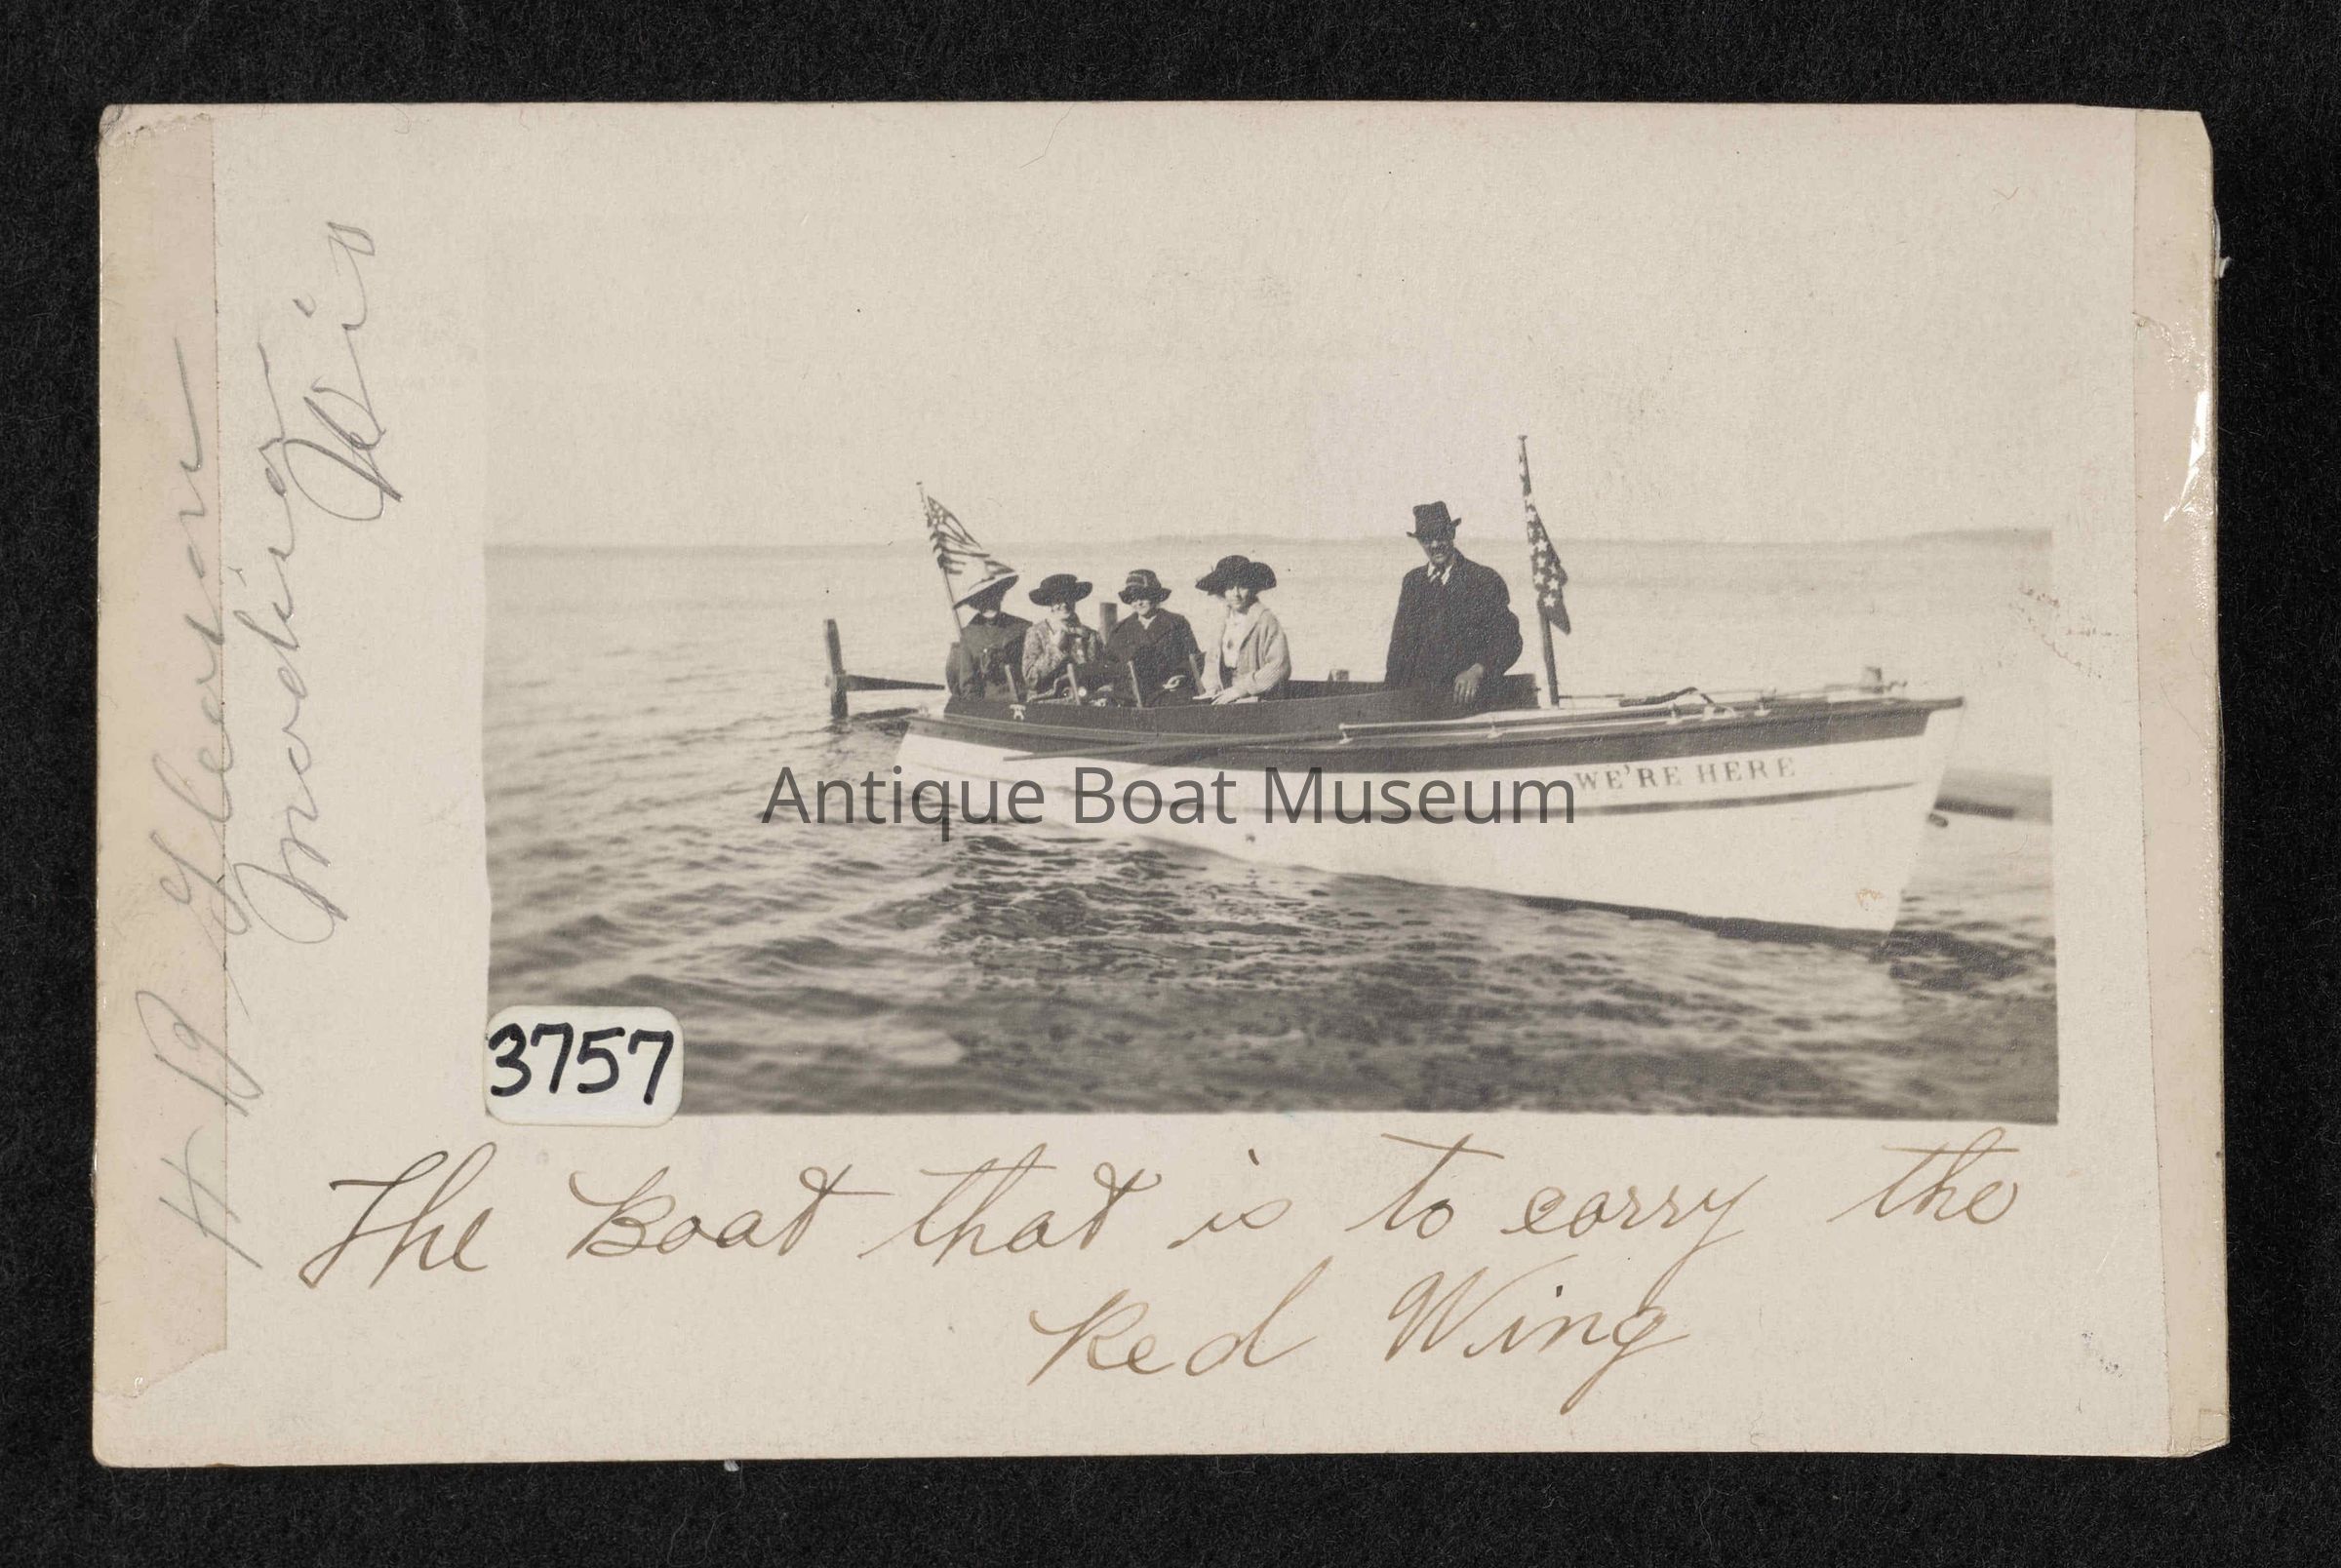 H P Gleason
Wis
WE'RE HERE
Antique Boat Museum
3757
The Boat that is to carry the
Red Wing